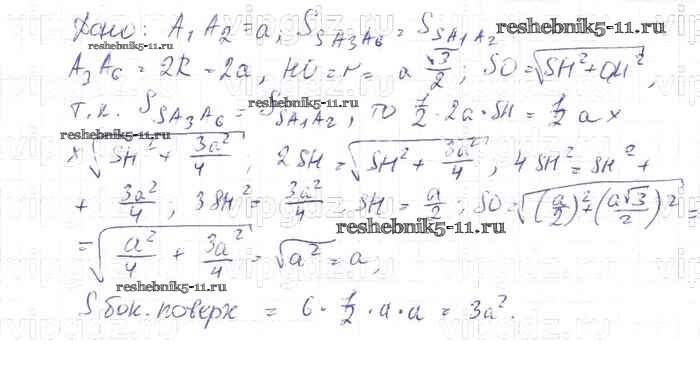 Дано: A₁A₂=a, S_SA₃A₆ = S_SA₁A₂ reshebnik5-11.ru
reshebnik5-11.ru
A₃A₆ = 2R = 2a, HO = r = a √3/2; SO = √(SH²+OH²),
т.к. S_SA₃A₆ = S_SA₁A₂, то 1/2 · 2a · SH = 1/2 a ×
reshebnik5-11.ru
× √(SH² + 3a²/4); 2SH = √(SH² + 3a²/4), 4SH² = SH² +
+ 3a²/4; 3SH² = 3a²/4. SH = a/2; SO = √((a/2)²+(a√3/2)²) =
reshebnik5-11.ru
= √(a²/4 + 3a²/4) = √a² = a,
reshebnik5-11.ru
S бок. поверх = 6 · 1/2 · a · a = 3a².
vipgdz.ru